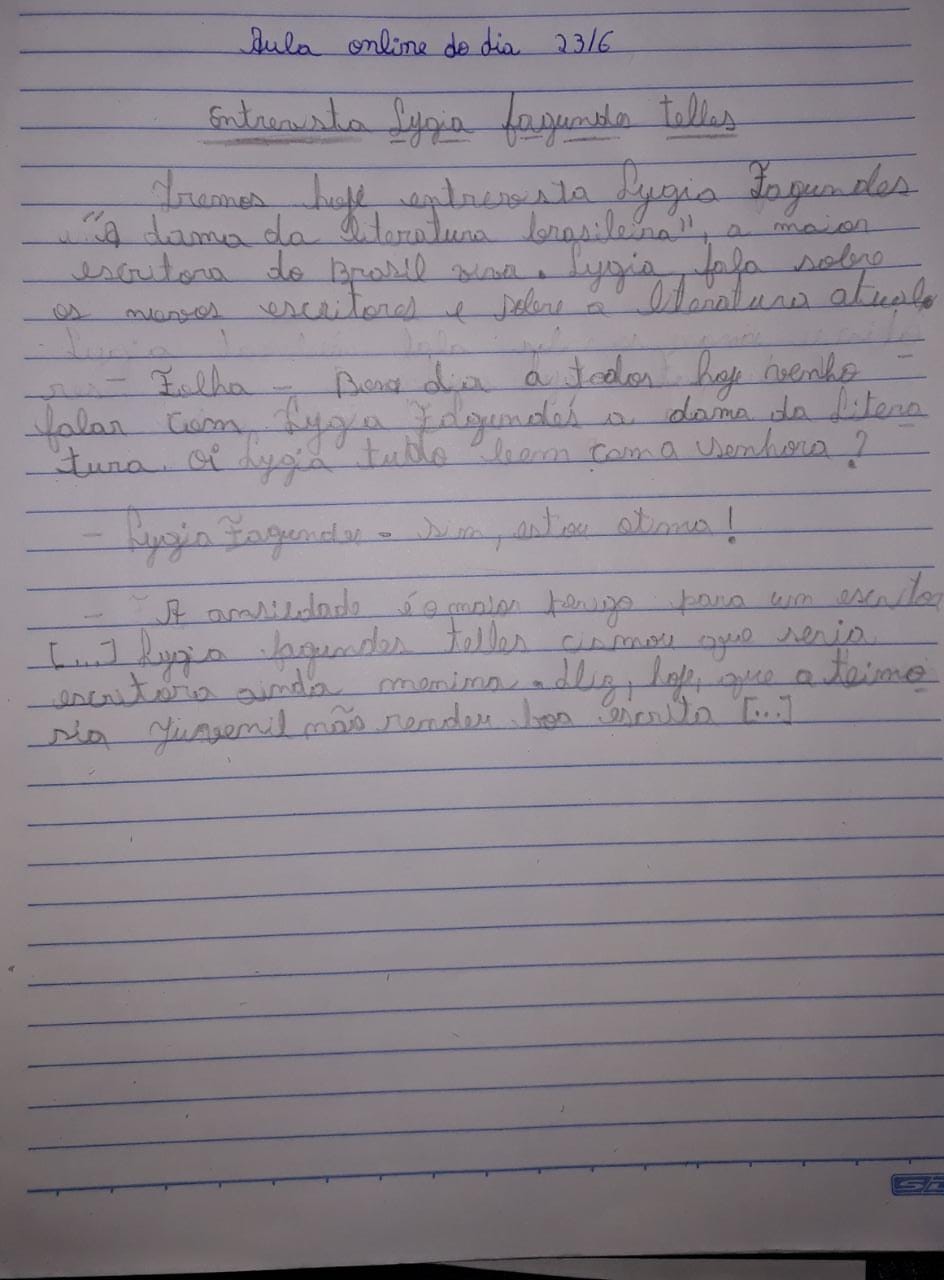 Aula online do dia 23/6
Entrevista Lygia fagundo telles
Iremos hoje entrevista Lygia Fagundes
"A dama da literatura brasileira", a maior
escritora do Brasil viva. Lygia fala sobre
os novos escritores e sobre a literatura atual.
- Folha - Bom dia a todos hoje venho
falar com Lygia Fagundes a dama da litera
tura. Oi Lygia tudo bem com a senhora?
- Lygia Fagundes - Sim, estou otima!
- A ansiedade é o maior perigo para um escritor
[...] Lygia fagundes telles cismou que seria
escritora ainda menina. diz, hoje, que a teimo
sia juvenil não rendeu boa escrita [...]